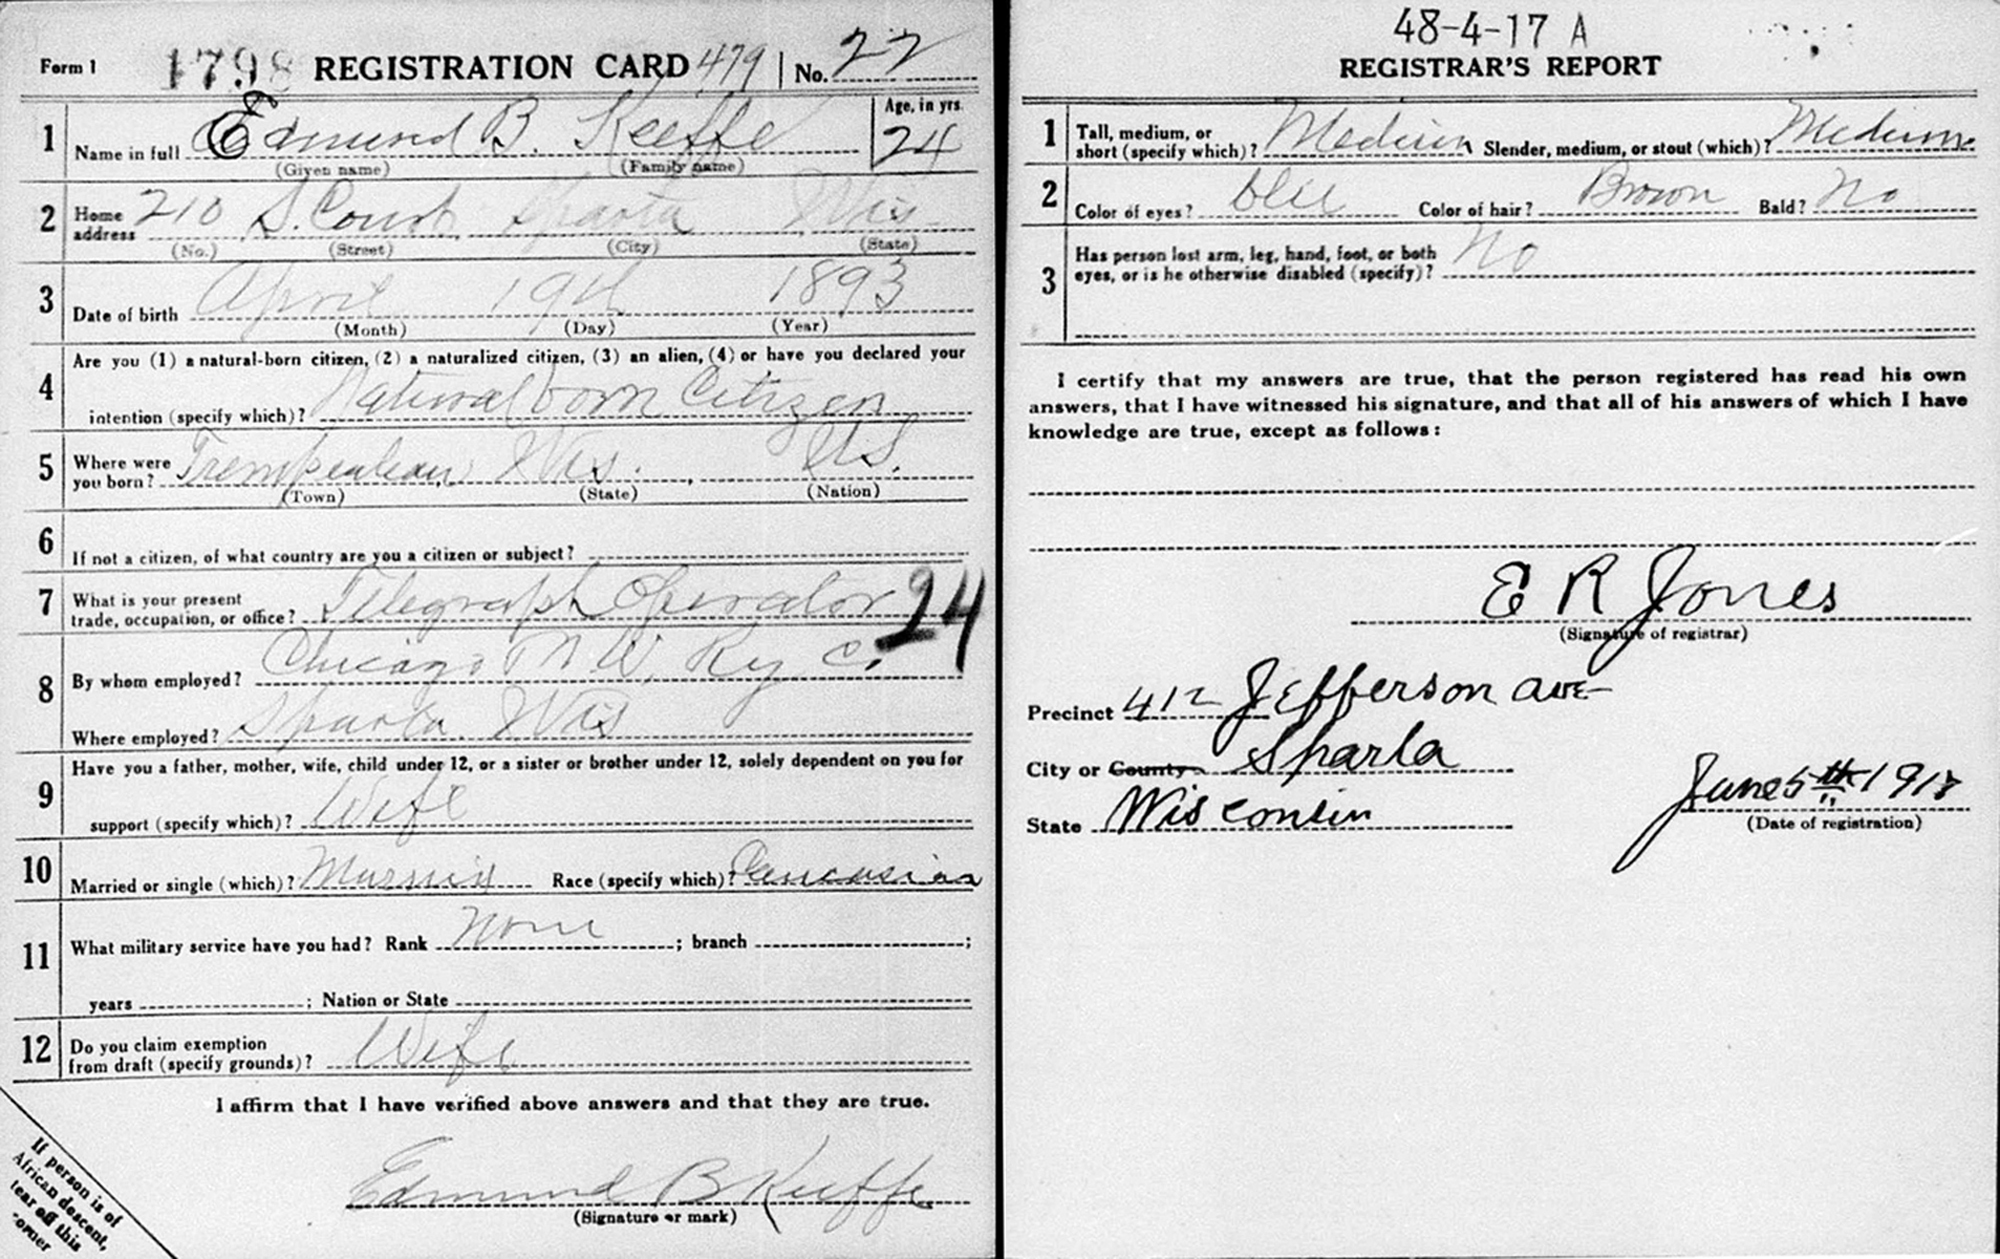 Form 1 1798 REGISTRATION CARD 479 No. 22
1 Name in full Edmund B. Keeffe Age, in yrs. 24
(Given name) (Family name)
2 Home address 210 S. Court Sparta Wis
(No.) (Street) (City) (State)
3 Date of birth April 19th 1893
(Month) (Day) (Year)
4 Are you (1) a natural-born citizen, (2) a naturalized citizen, (3) an alien, (4) or have you declared your
intention (specify which)? Natural born Citizen
5 Where were you born? Trempealeau Wis. U.S.
(Town) (State) (Nation)
6 If not a citizen, of what country are you a citizen or subject?
7 What is your present
trade, occupation, or office? Telegraph Operator 24
8 By whom employed? Chicago N W. Ry C.
Where employed? Sparta Wis
9 Have you a father, mother, wife, child under 12, or a sister or brother under 12, solely dependent on you for
support (specify which)? Wife
10 Married or single (which)? Married Race (specify which)? Caucasian
11 What military service have you had? Rank None ; branch ;
years ; Nation or State
12 Do you claim exemption
from draft (specify grounds)? Wife
I affirm that I have verified above answers and that they are true.
Edmund B Keeffe
(Signature or mark)
If person is of
African descent,
tear off this
corner
48-4-17 A
REGISTRAR'S REPORT
1 Tall, medium, or
short (specify which)? Medium Slender, medium, or stout (which)? Medium
2 Color of eyes? blue Color of hair? Brown Bald? No
3 Has person lost arm, leg, hand, foot, or both
eyes, or is he otherwise disabled (specify)? No
I certify that my answers are true, that the person registered has read his own
answers, that I have witnessed his signature, and that all of his answers of which I have
knowledge are true, except as follows:
E R Jones
(Signature of registrar)
Precinct 412 Jefferson ave
City or County Sparta
State Wisconsin June 5th 1917
(Date of registration)